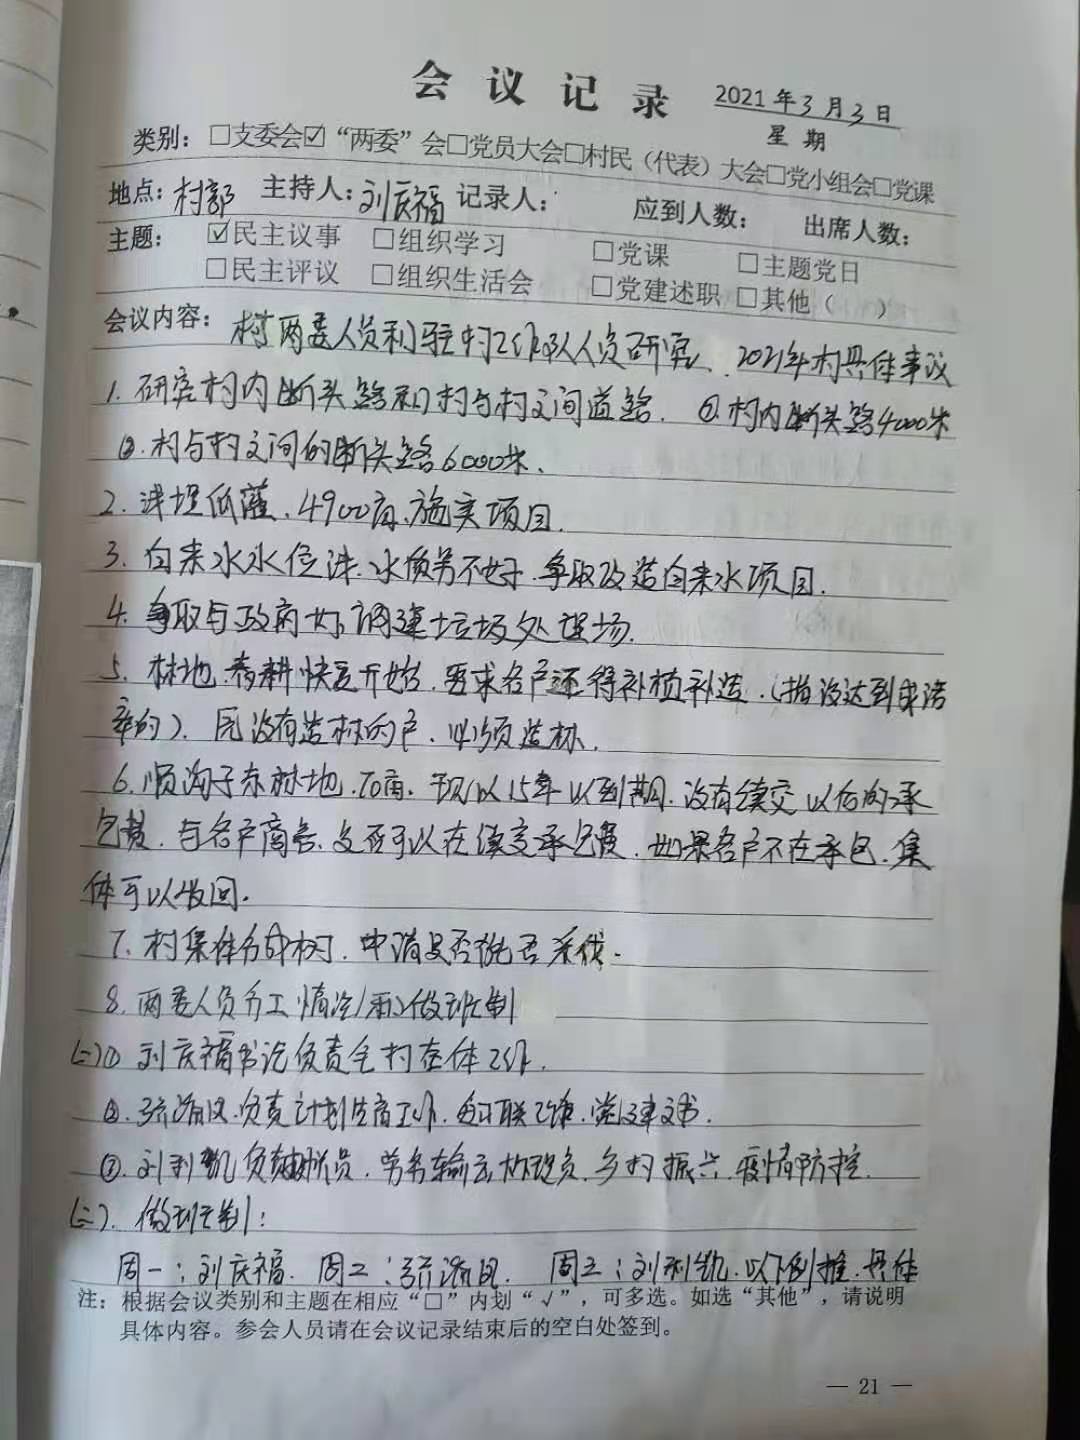 会议记录
2021年3月3日
星期
类别：□支委会☑“两委”会□党员大会□村民（代表）大会□党小组会□党课
地点：村部 主持人：刘庆福 记录人： 应到人数： 出席人数：
主题： ☑民主议事 □组织学习 □党课 □主题党日
□民主评议 □组织生活会 □党建述职 □其他（ ）
会议内容：村两委人员和驻村工作队人员研究、2021年村具体事议
1. 研究村内断头路和村与村之间道路. ①.村内断头路4000米
②.村与村之间的断头路6000米、
2. 浅埋低灌、4900亩、施实项目.
3. 自来水水位浅、水质另不好、争取改造自来水项目.
4. 争取与政府协调建垃圾处理场.
5. 林地、春耕快要开始、要求各户还得补植补造、（指没达到成活
率的）、凡没有造林的户、必须造林、
6. 顺沟子东林地、70亩、现以15年以到期、没有续交以后的承
包费、与各户商告、是否可以在续交承包费、如果各户不在承包、集
体可以收回.
7. 村集体分成树、申请是否批否采伐.
8. 两委人员分工情况/和做班制
①刘庆福书记负责全村全体工作.
②. 负责计划生育工作、妇联工作、党建文书.
③. 刘利凯负、劳务输出、乡村振兴、疫情防控.
(二). 做班制：
周一：刘庆福. 周二： 周三：刘利凯. 以下例推、具体
注：根据会议类别和主题在相应“□”内划“√”，可多选。如选“其他”，请说明
具体内容。参会人员请在会议记录结束后的空白处签到。
— 21 —